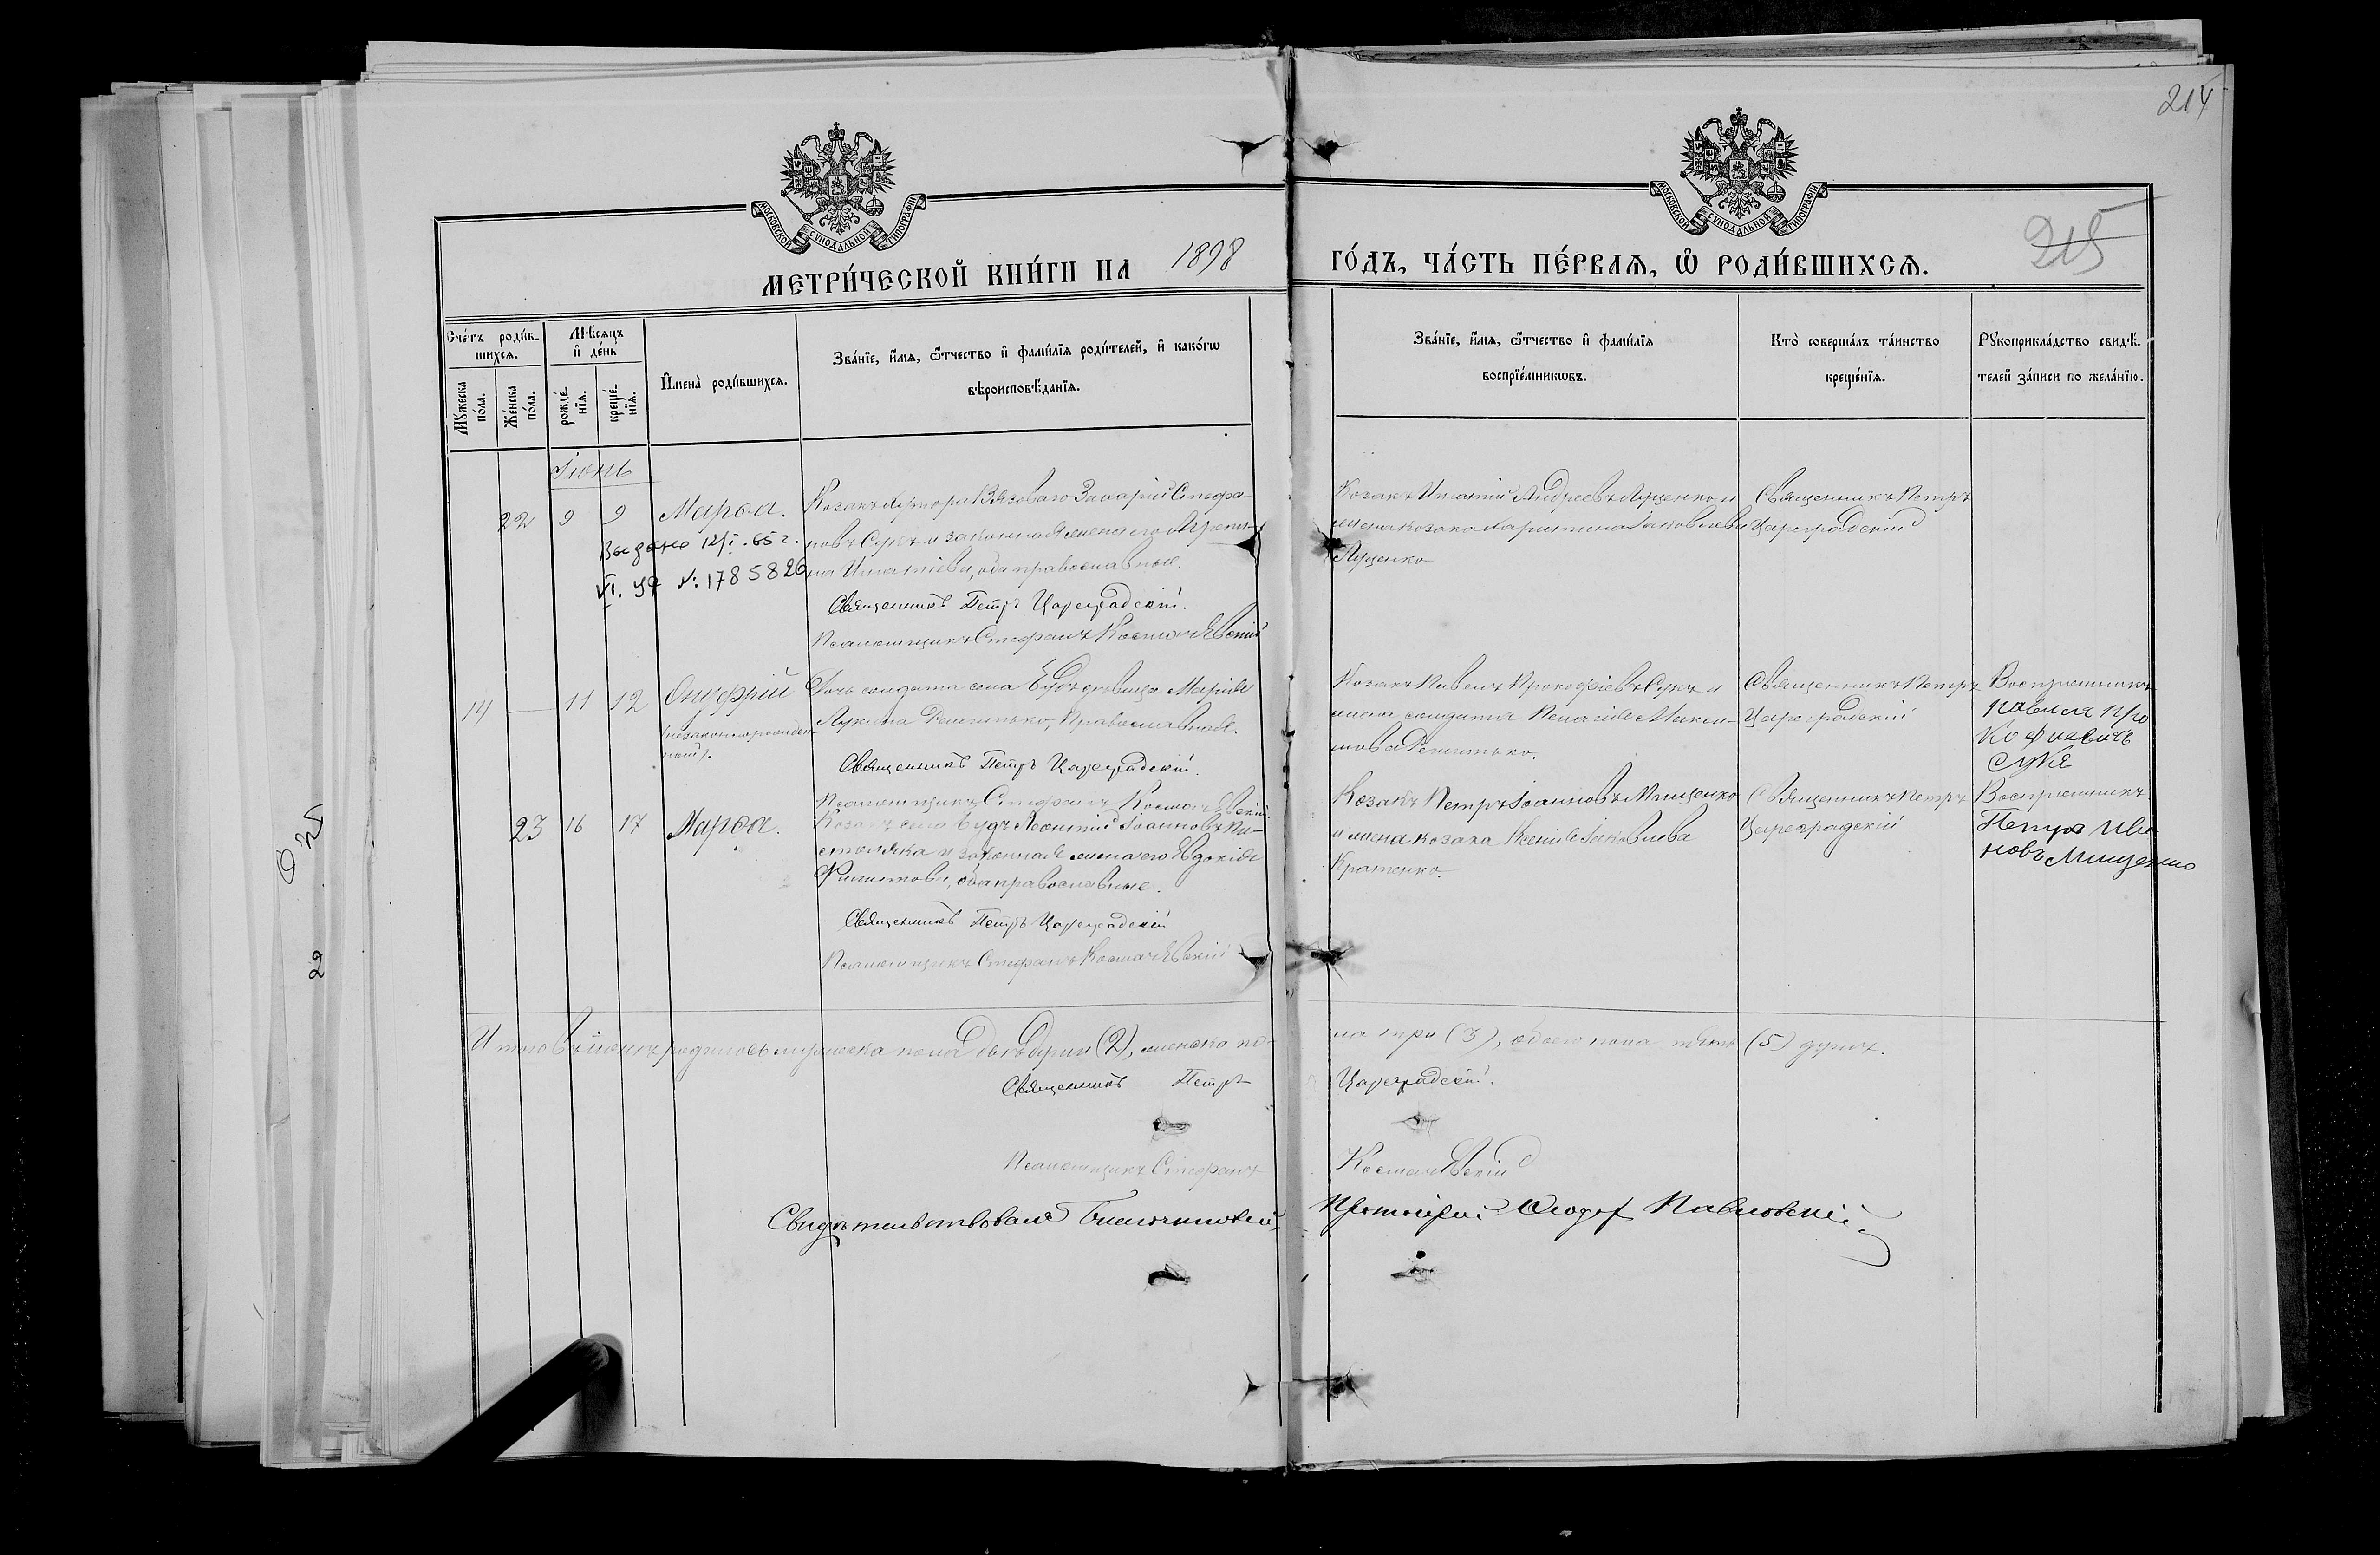 214
215
МОСКОВСКОЙ СѴНОДАЛЬНОЙ ТИПОГРАФІИ
МОСКОВСКОЙ СѴНОДАЛЬНОЙ ТИПОГРАФІИ
МЕТРИ́ЧЕСКОЙ КНИ́ГИ НА 1898 ГО́ДЪ, ЧА́СТЬ ПЕ́РВАѦ, Ѡ҆ РОДИ́ВШИХСѦ.
Сче́тъ роди́в-
шихсѧ.
Мꙋжеска по́ла.
Же́нска по́ла.
Мѣ́сѧцъ и҆ де́нь
рожде́-нїѧ.
креще́-нїѧ.
И҆мена̀ роди́вшихсѧ.
Зва́нїе, и҆́мѧ, ѻ҆́тчество и҆ фами́лїѧ роди́телей, и҆ како́гѡ
вѣроисповѣ́данїѧ.
Зва́нїе, и҆́мѧ, ѻ҆́тчество и҆ фами́лїѧ
воспрїе́мникѡвъ.
Кто̀ соверша́лъ та́инство
креще́нїѧ.
Рꙋкоприкла́дство свидѣ́-
телей за́писи по жела́нїю.
Іюнь
22 9 9 Марѳа.
Выдано 12/I. 65 г.
VI. ЯФ №: 1785820
Козакъ хутора Вязоваго Захарій Стефа-
новъ Сукъ и законная жена его Агрипи-
на Игнатіева, оба православные.
Священникъ Петръ Цареградскій.
Псаломщикъ Стефанъ Космачевскій
Козакъ Игнатій Андреевъ Луценко и
жена козака Харитина Іаковлева
Луценко
Священникъ Петръ
Цареградскій
14 — 11 12 Онуфрій
(незаконнорожден-
ный).
Дочь солдата села Марія
Лукина православная.
Священникъ Петръ Цареградскій.
Псаломщикъ Стефанъ Космачевскій.
Козакъ Павелъ Прокофіевъ Сукъ и
жена солдата Пелагія Макси-
мова
Священникъ Петръ
Цареградскій
Воспріемникъ
Павелъ Про
кофиевичъ
Сукъ
23 16 17 Марѳа.
Козакъ села Будъ Леонтій Іоанновъ Пи-
столяка и законная жена его Евдокія
Филиппова, оба православные.
Священникъ Петръ Цареградскій
Псаломщикъ Стефанъ Космачевскій
Козакъ Петръ Іоанновъ Мищенко
и жена козака Ксенія Іаковлева
Кратенко.
Священникъ Петръ
Цареградскій
Воспріемникъ
Петръ Ива
новъ Мищенко
Итого въ іюнѣ родилось мужеска пола двѣ души (2), женска по-
ла три (3), обоего пола пять (5) душъ.
Священникъ Петръ Цареградскій.
Псаломщикъ Стефанъ Космачевскій
Свидѣтельствовалъ Благочинный, Протоіерей Ѳеодоръ Павловскій